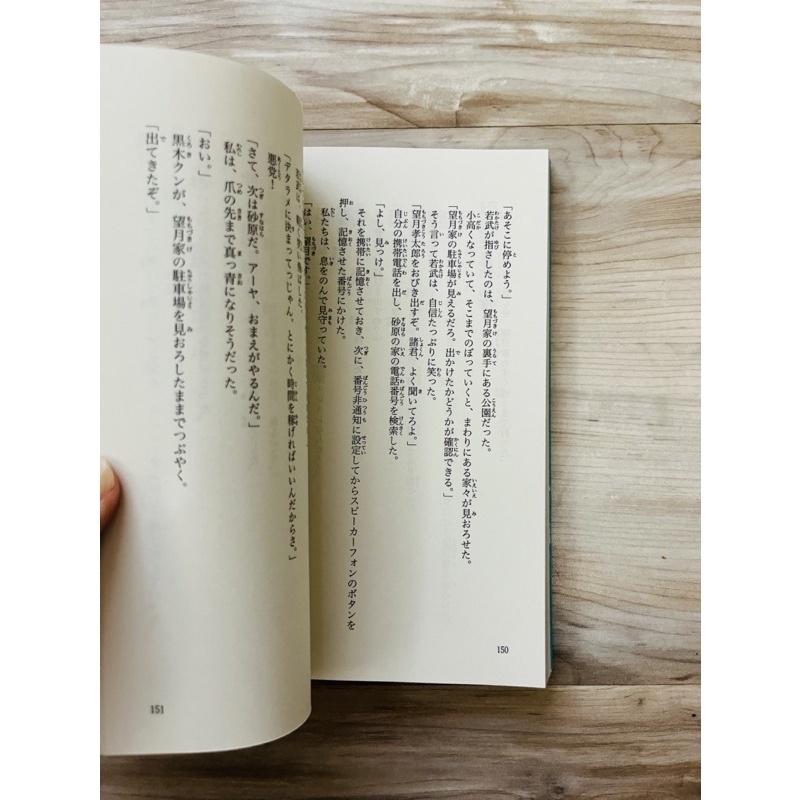 「あそこに停めよう。」
若武が指さしたのは、望月家の裏手にある公園だった。
小高くなっていて、そこまでのぼっていくと、まわりにある家々が見おろせた。
「望月家の駐車場が見えるだろ。出かけたかどうかが確認できる。」
そう言って若武は、自信たっぷりに笑った。
「望月孝太郎をおびき出すぞ。諸君、よく聞いてろよ。」
自分の携帯電話を出し、砂原の家の電話番号を検索した。
「よし、見っけ。」
それを携帯に記憶させておき、次に、番号非通知に設定してからスピーカーフォンのボタンを
押し、記憶させた番号にかけた。
私たちは、息をのんで見守っていた。
「はい、望月です。」
150
「デタラメに決まってっじゃん。とにかく時間を稼げればいいんだからさ。」
悪党！
「さて、次は砂原だ。アーヤ、おまえがやるんだ。」
私は、爪の先まで真っ青になりそうだった。
「おい。」
黒木クンが、望月家の駐車場を見おろしたままでつぶやく。
「出てきたぞ。」
151